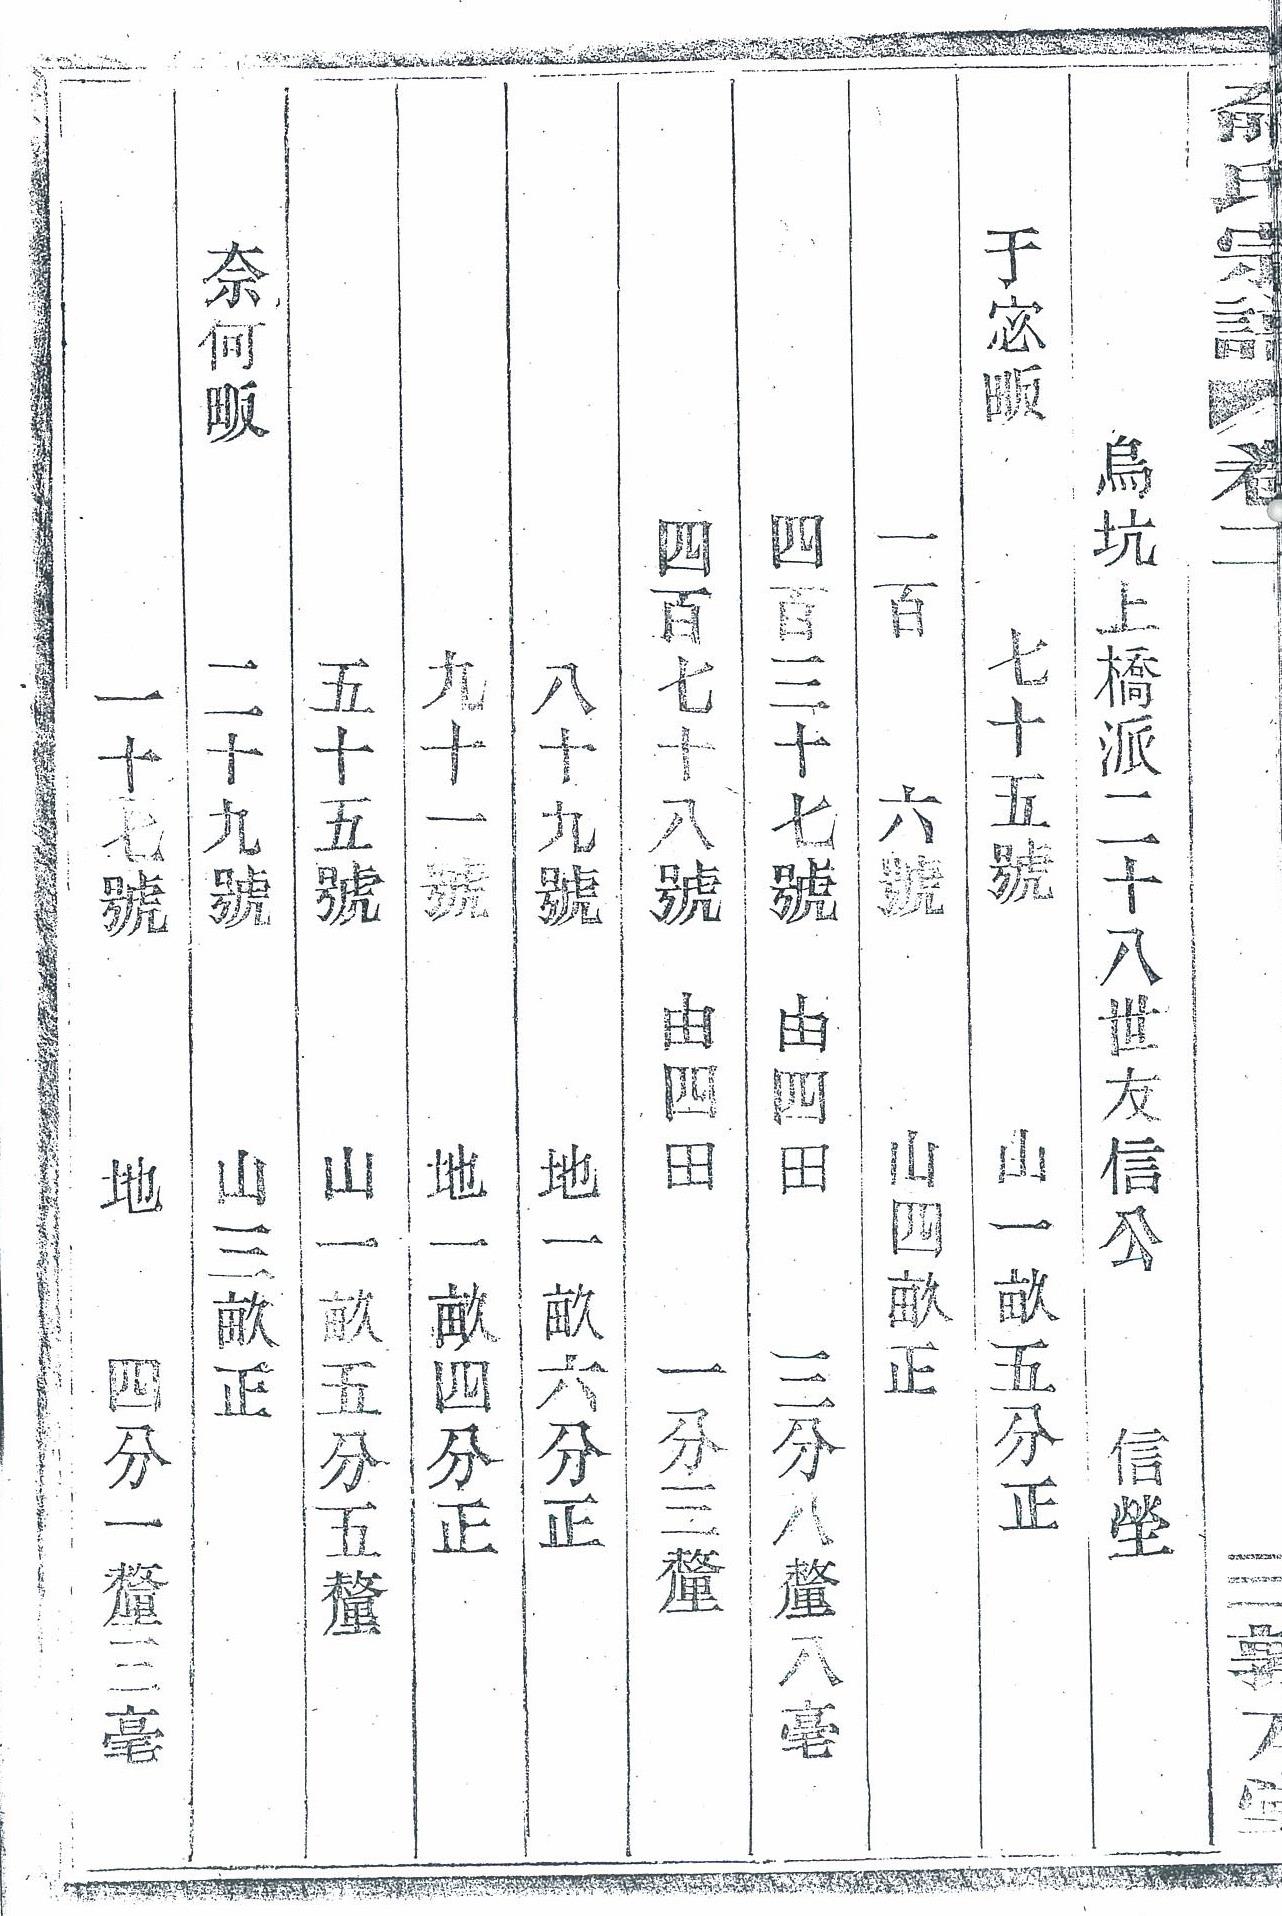 氏宗譜 卷二 三
烏坑上橋派二十八世友信公 信塋
于宓畈 七十五號 山一畝五分正
一百 六號 山四畝正
四百三十七號 由四田 三分八釐八毫
四百七十八號 由四田 一分三釐
八十九號 地一畝六分正
九十一號 地一畝四分正
五十五號 山一畝五分五釐
奈何畈 二十九號 山三畝正
一十七號 地 四分一釐三毫